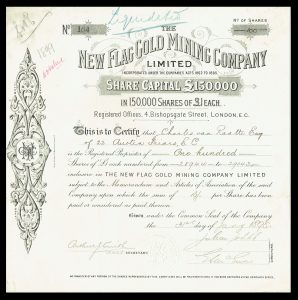 Liquidated
THE
No 104
No OF SHARES
100
NEW FLAG GOLD MINING COMPANY
LIMITED
INCORPORATED UNDER THE COMPANIES ACTS 1862 TO 1893.
SHARE CAPITAL £150000
IN 150000 SHARES OF £1 EACH.
Registered Offices, 4, Bishopsgate Street, LONDON, E.C.
This is to Certify that Charles van Raalte Esq
of 23 Austin Friars, E C
is the Registered Proprietor of One hundred
Shares of £1 each numbered from 28944 to 29043
inclusive in THE NEW FLAG GOLD MINING COMPANY LIMITED
subject to the Memorandum and Articles of Association of the said
Company upon which the sum of per Share has been
paid or considered as paid thereon.
Given under the Common Seal of the Company
the day of 1895
SECRETARY